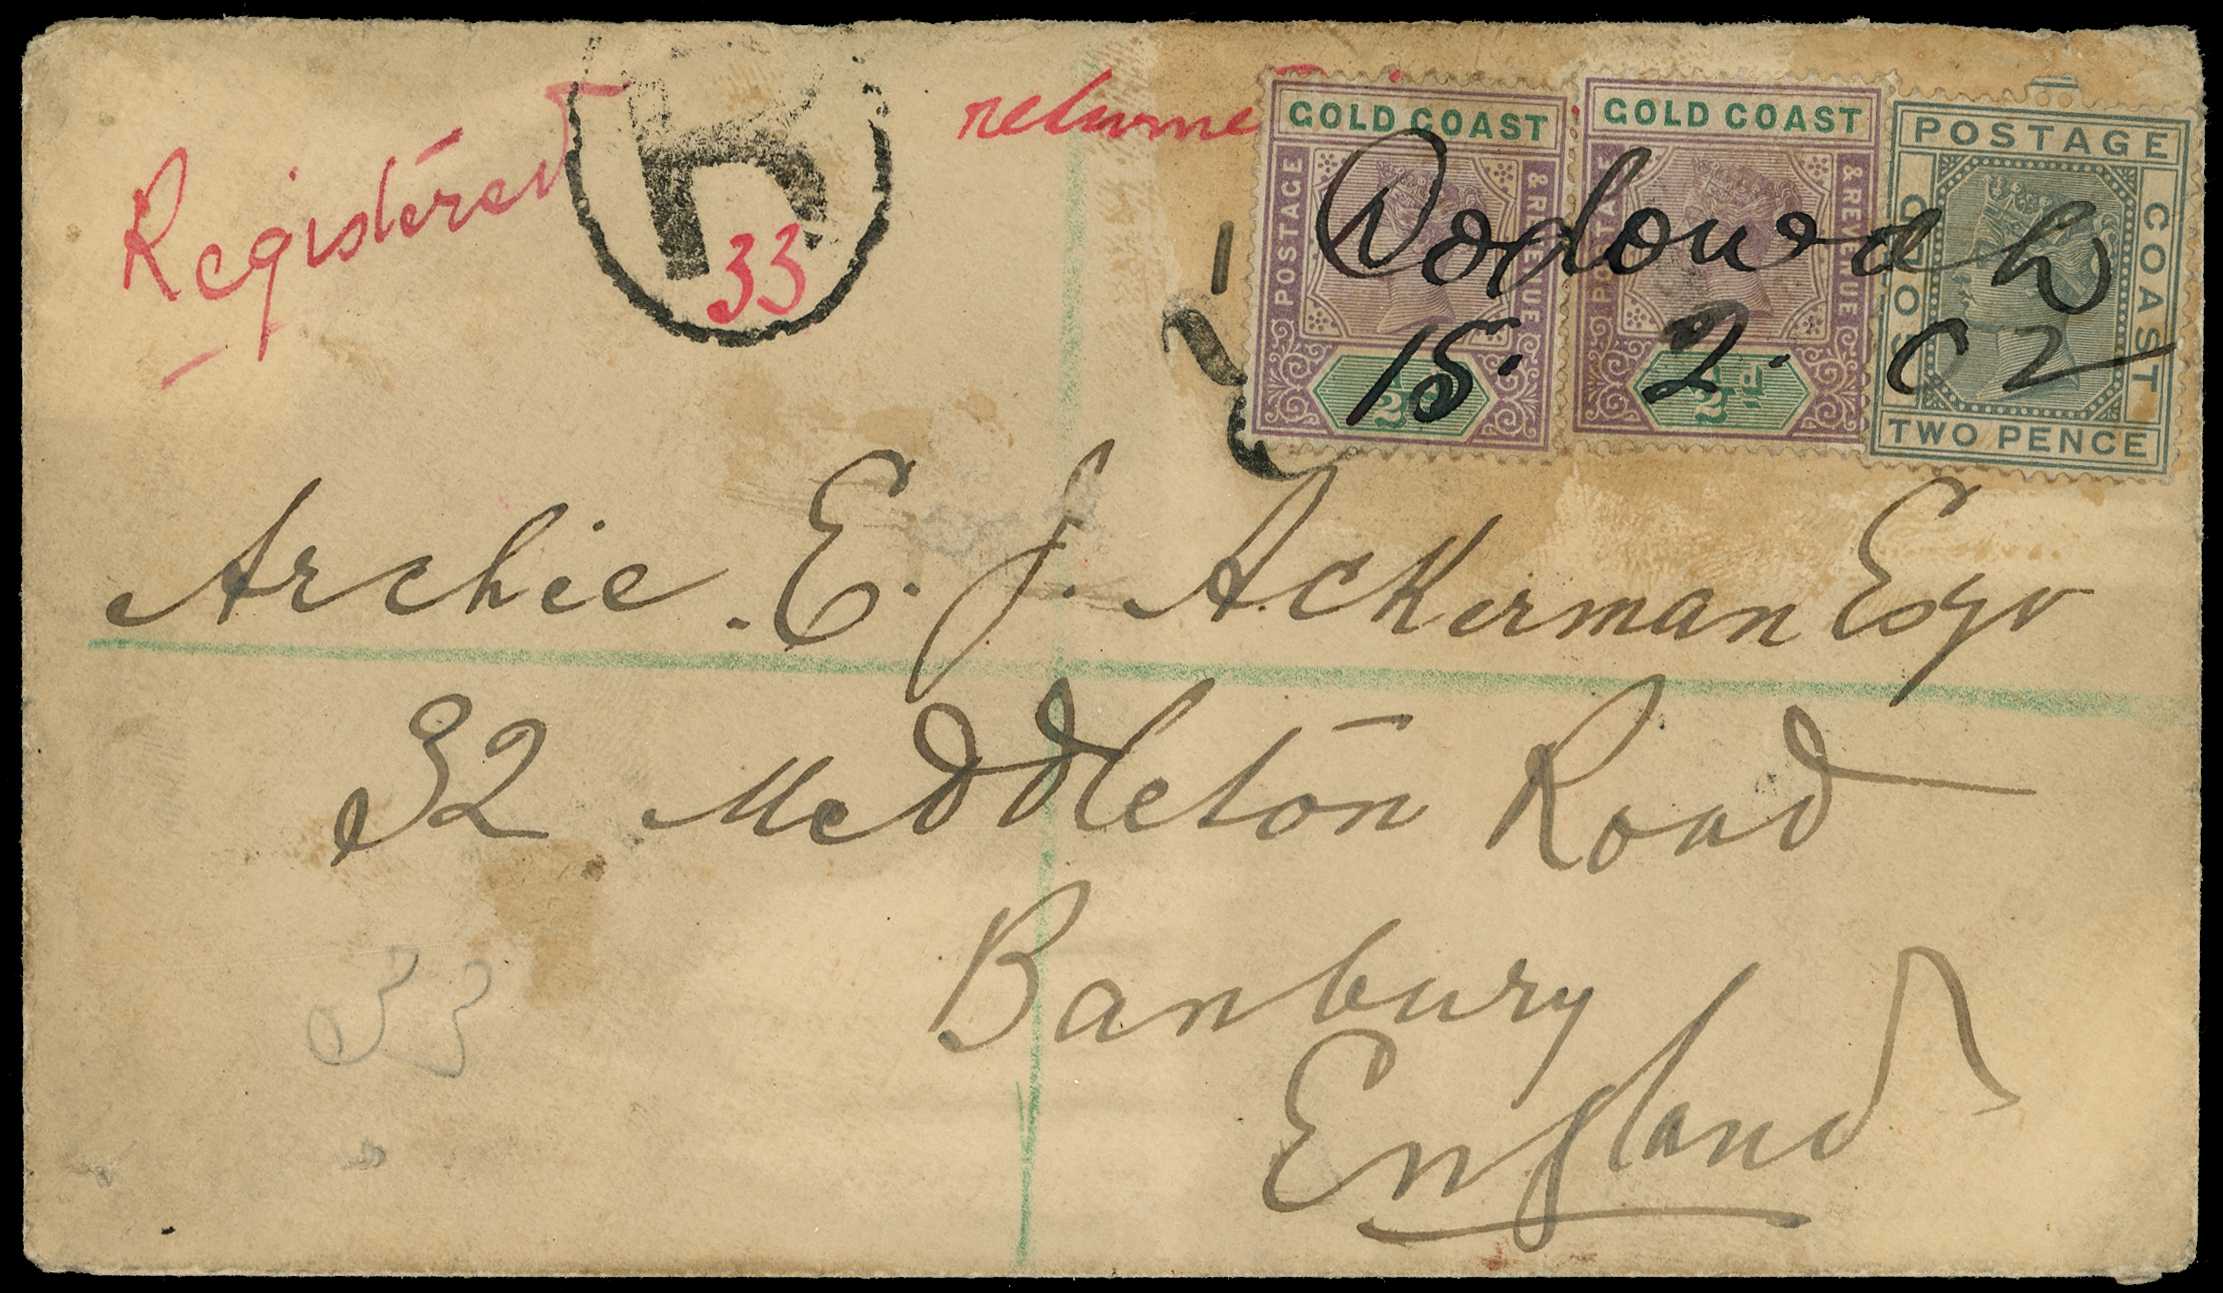 Registered
R
33
returne
GOLD COAST
POSTAGE
& REVENUE
GOLD COAST
POSTAGE
& REVENUE
2½d
POSTAGE
GOLD
COAST
TWO PENCE
Dodowah
15. 2. 02
Archie. E. J. Ackerman Esqr
32 Middleton Road
Banbury
England
33